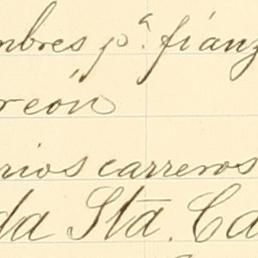 mbres pª. fianz
reón
rios carreros
da Sta. Ca